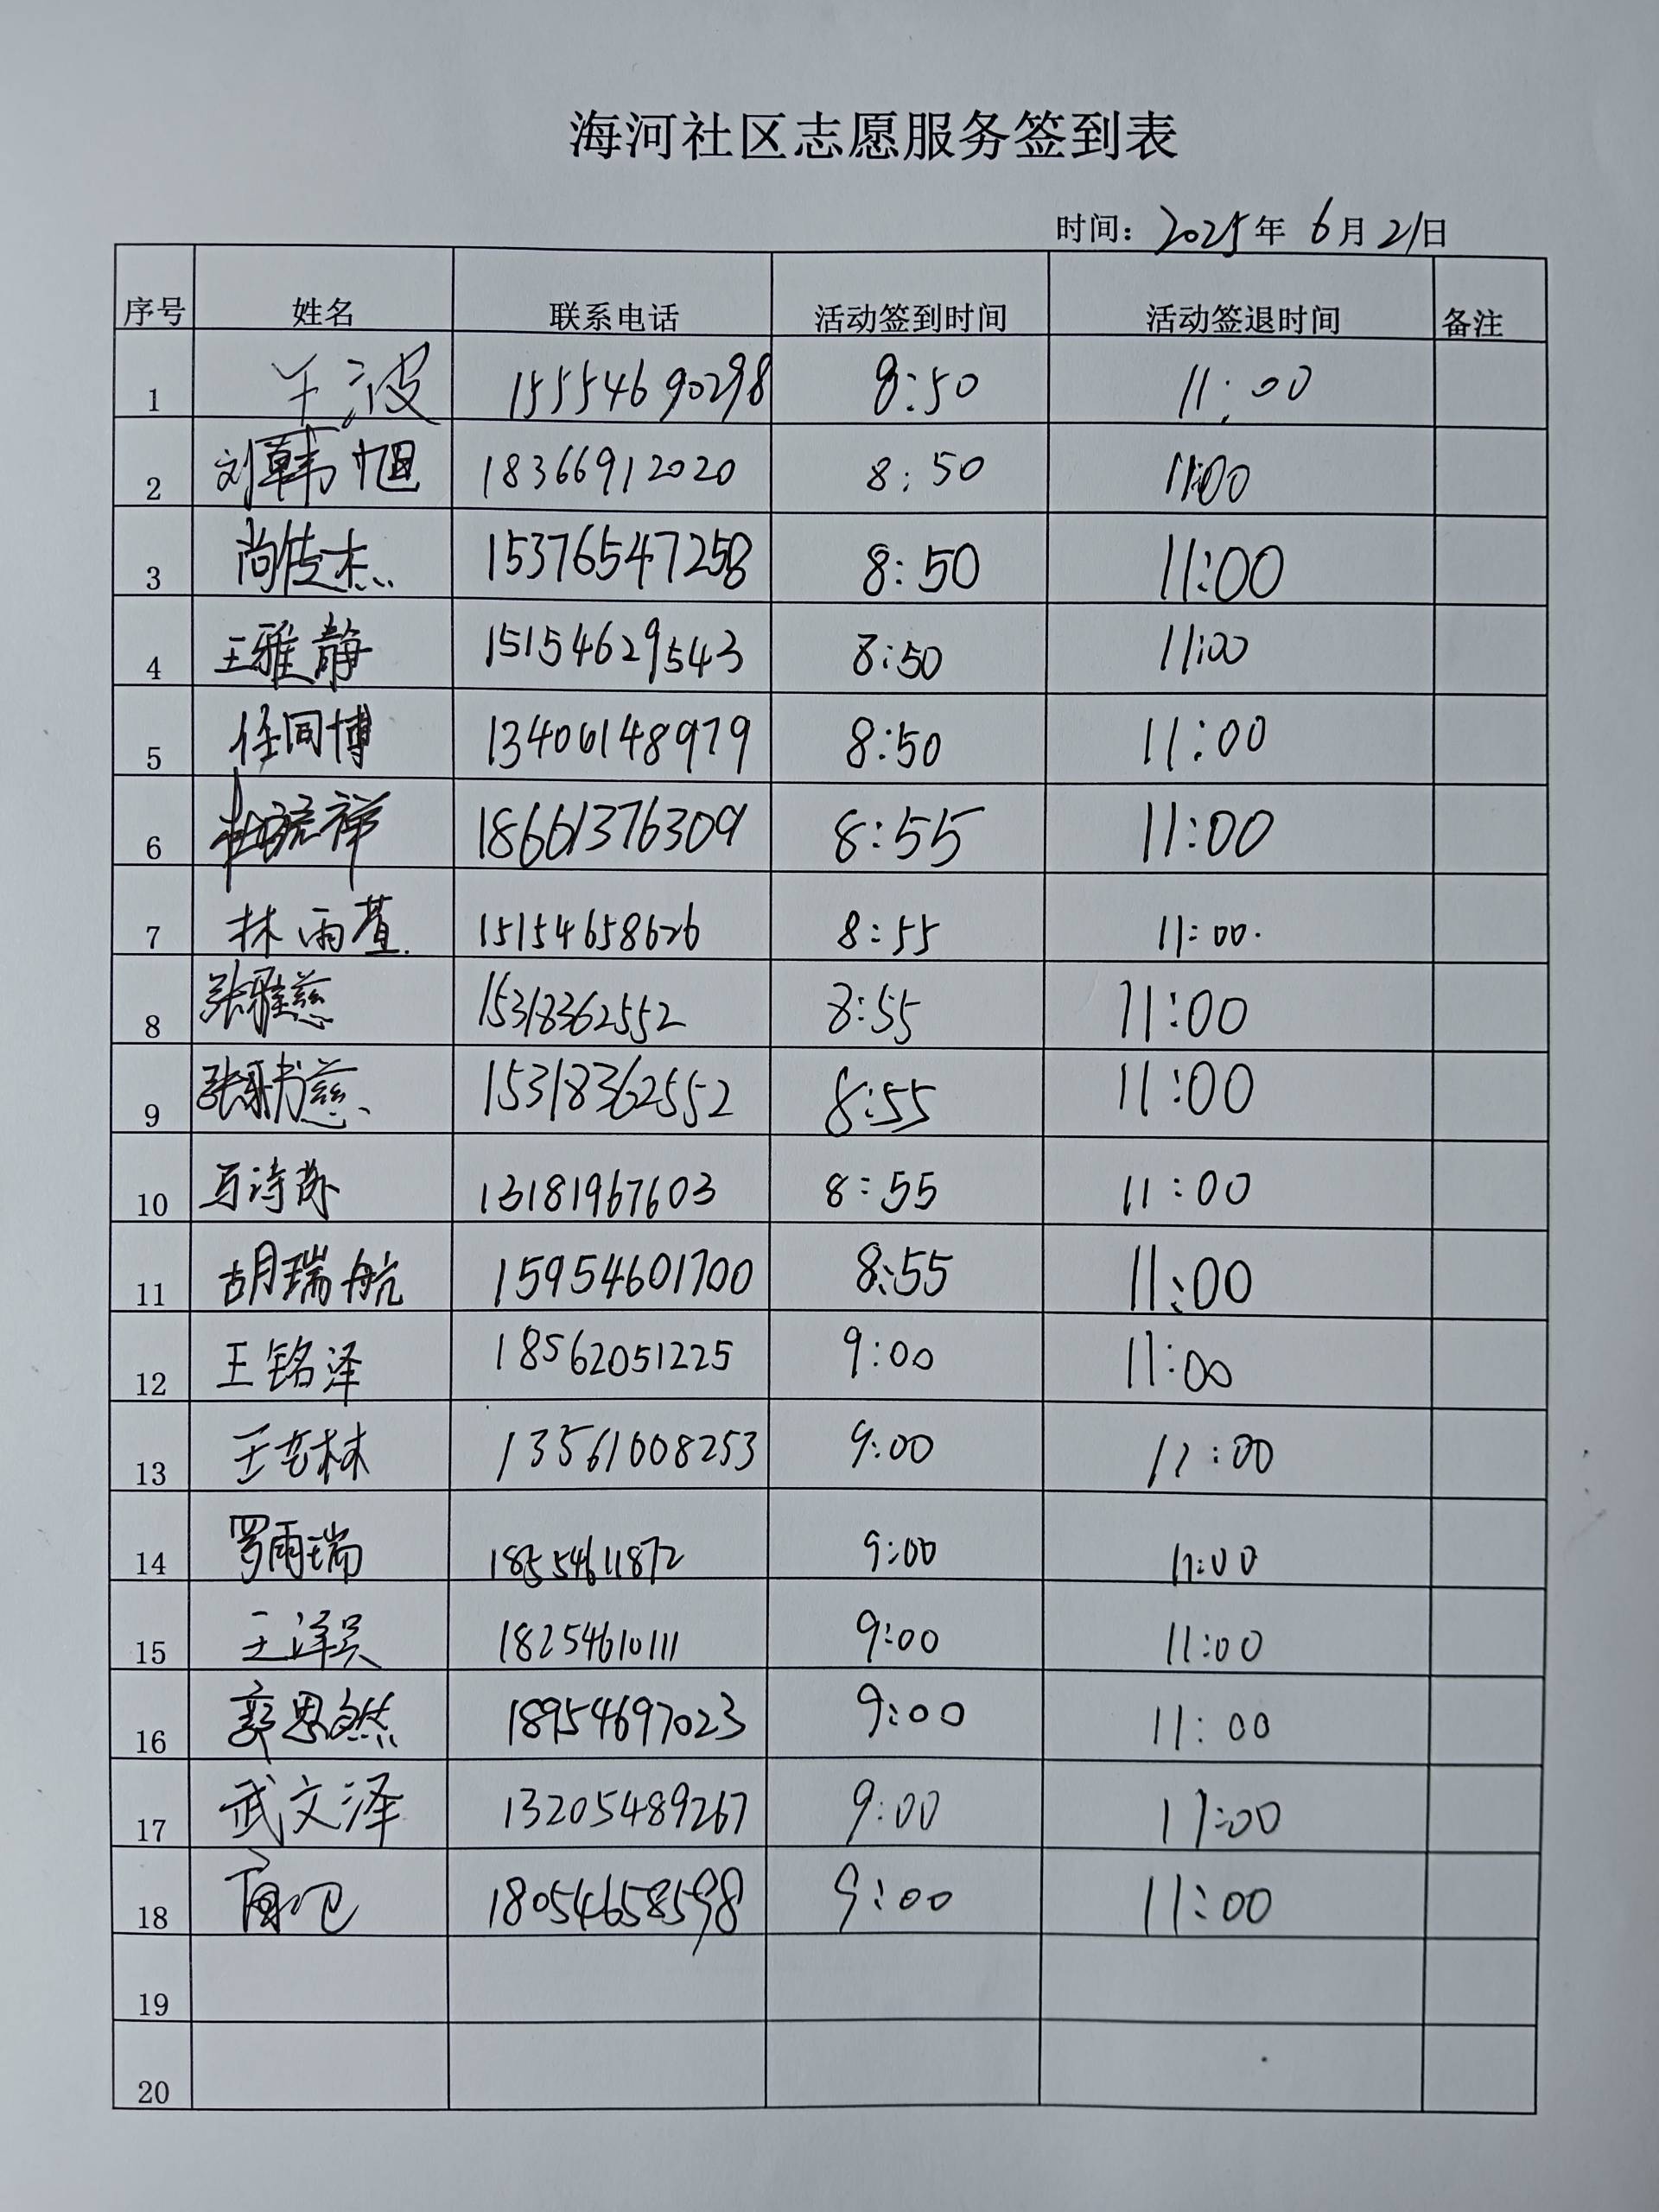 海河社区志愿服务签到表
时间：2025年 6月21日
序号 姓名 联系电话 活动签到时间 活动签退时间 备注
1 王波 15554690298 8:50 11:00
2 刘韩旭 18366912020 8:50 11:00
3 尚传杰 15376547258 8:50 11:00
4 王雅静 15154629543 8:50 11:00
5 任同博 13406148979 8:50 11:00
6 祥 18661376309 8:55 11:00
7 林雨萱 15154658626 8:55 11:00
8 张雅慈 15318362552 8:55 11:00
9 张书慈 15318362552 8:55 11:00
10 马诗 13181967603 8:55 11:00
11 胡瑞航 15954601700 8:55 11:00
12 王铭泽 18562051225 9:00 11:00
13 王艺林 13561008253 9:00 11:00
14 罗雨瑞 18554611872 9:00 11:00
15 王泽昊 18254610111 9:00 11:00
16 郭思然 18954697023 9:00 11:00
17 武文泽 13205489267 9:00 11:00
18 18054658598 9:00 11:00
19
20